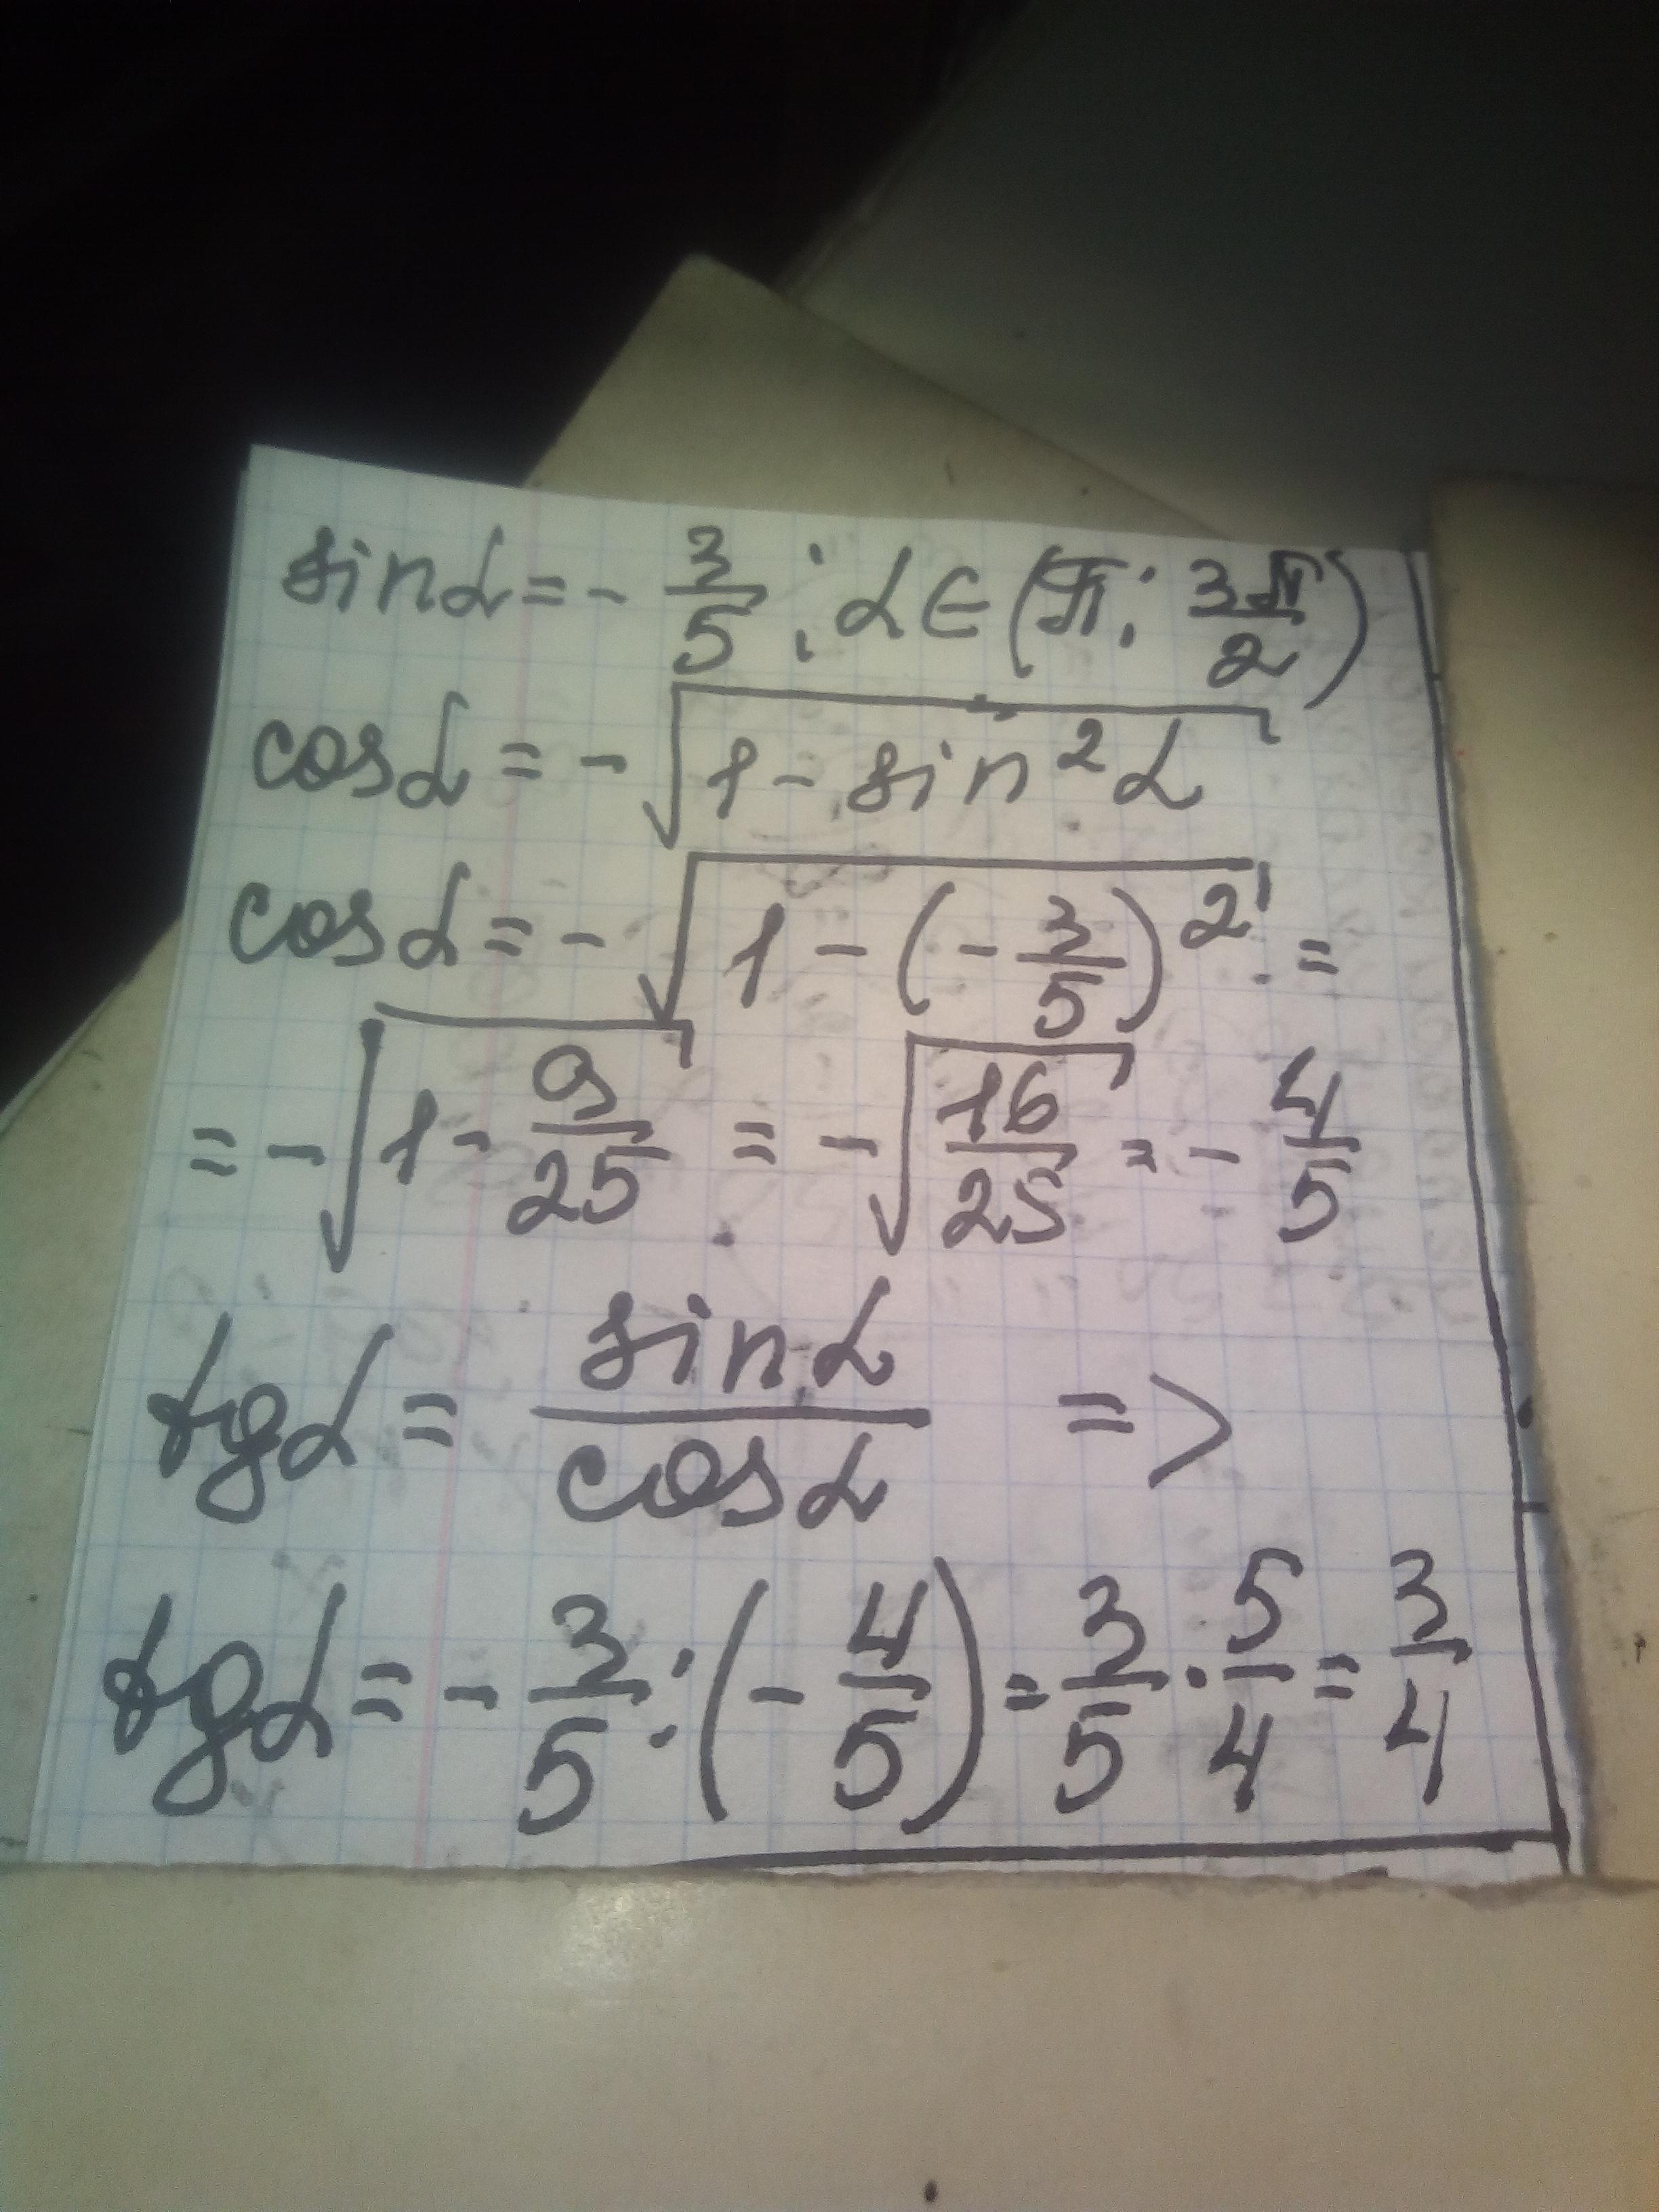 sinα = - 3/5 ; α ∈ (π; 3π/2)
cosα = - √(1 - sin²α)
cosα = - √(1 - (- 3/5)²) =
= - √(1 - 9/25) = - √(16/25) = - 4/5
tgα = sinα/cosα =>
tgα = - 3/5 : (- 4/5) = 3/5 · 5/4 = 3/4